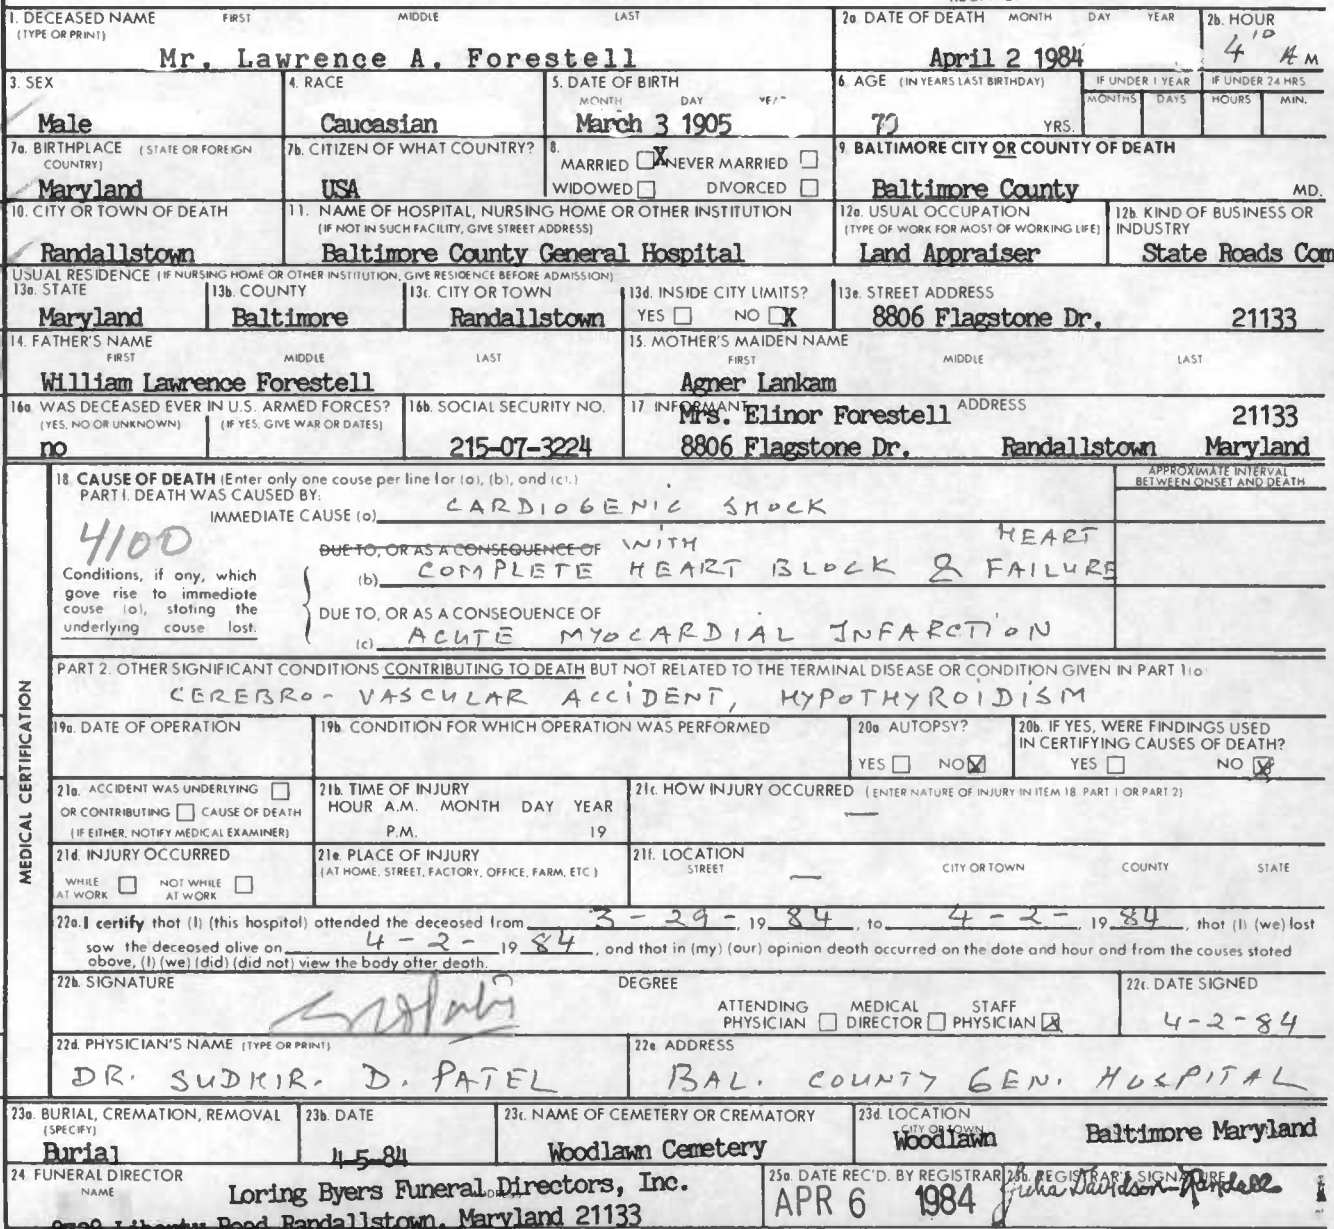 1. DECEASED NAME FIRST MIDDLE LAST
(TYPE OR PRINT)
Mr. Lawrence A. Forestell
2a. DATE OF DEATH MONTH DAY YEAR
April 2 1984
2b. HOUR
4 10 A M
3. SEX
Male
4. RACE
Caucasian
5. DATE OF BIRTH
MONTH DAY
March 3 1905
6. AGE (IN YEARS LAST BIRTHDAY)
YRS.
IF UNDER 1 YEAR
MONTHS DAYS
IF UNDER 24 HRS
HOURS MIN.
7a. BIRTHPLACE (STATE OR FOREIGN
COUNTRY)
Maryland
7b. CITIZEN OF WHAT COUNTRY?
USA
8.
MARRIED X NEVER MARRIED
WIDOWED DIVORCED
9. BALTIMORE CITY OR COUNTY OF DEATH
Baltimore County MD.
10. CITY OR TOWN OF DEATH
Randallstown
11. NAME OF HOSPITAL, NURSING HOME OR OTHER INSTITUTION
(IF NOT IN SUCH FACILITY, GIVE STREET ADDRESS)
Baltimore County General Hospital
12a. USUAL OCCUPATION
(TYPE OF WORK FOR MOST OF WORKING LIFE)
Land Appraiser
12b. KIND OF BUSINESS OR
INDUSTRY
State Roads Com
USUAL RESIDENCE (IF NURSING HOME OR OTHER INSTITUTION, GIVE RESIDENCE BEFORE ADMISSION)
13a. STATE
Maryland
13b. COUNTY
Baltimore
13c. CITY OR TOWN
Randallstown
13d. INSIDE CITY LIMITS?
YES NO X
13e. STREET ADDRESS
8806 Flagstone Dr. 21133
14. FATHER'S NAME
FIRST MIDDLE LAST
William Lawrence Forestell
15. MOTHER'S MAIDEN NAME
FIRST MIDDLE LAST
Agner Lankam
16a WAS DECEASED EVER IN U.S. ARMED FORCES?
(YES, NO OR UNKNOWN) (IF YES, GIVE WAR OR DATES)
no
16b. SOCIAL SECURITY NO.
215-07-3224
17 INFORMANT ADDRESS
Mrs. Elinor Forestell 21133
8806 Flagstone Dr. Randallstown Maryland
MEDICAL CERTIFICATION
18. CAUSE OF DEATH (Enter only one cause per line for (a), (b), and (c).)
PART I. DEATH WAS CAUSED BY:
APPROXIMATE INTERVAL
BETWEEN ONSET AND DEATH
IMMEDIATE CAUSE (a) CARDIOGENIC SHOCK
4100
DUE TO, OR AS A CONSEQUENCE OF WITH HEART
(b) COMPLETE HEART BLOCK & FAILURE
Conditions, if any, which
gove rise to immediate
cause (a), stating the
underlying cause last.
DUE TO, OR AS A CONSEQUENCE OF
(c) ACUTE MYOCARDIAL INFARCTION
PART 2. OTHER SIGNIFICANT CONDITIONS CONTRIBUTING TO DEATH BUT NOT RELATED TO THE TERMINAL DISEASE OR CONDITION GIVEN IN PART 1(a)
CEREBRO-VASCULAR ACCIDENT, HYPOTHYROIDISM
19a. DATE OF OPERATION
19b. CONDITION FOR WHICH OPERATION WAS PERFORMED
20a AUTOPSY?
YES NO X
20b. IF YES, WERE FINDINGS USED
IN CERTIFYING CAUSES OF DEATH?
YES NO X
21a. ACCIDENT WAS UNDERLYING
OR CONTRIBUTING CAUSE OF DEATH
(IF EITHER, NOTIFY MEDICAL EXAMINER)
21b. TIME OF INJURY
HOUR A.M. MONTH DAY YEAR
P.M. 19
21c. HOW INJURY OCCURRED (ENTER NATURE OF INJURY IN ITEM 18 PART 1 OR PART 2)
—
21d. INJURY OCCURRED
WHILE
AT WORK
NOT WHILE
AT WORK
21e. PLACE OF INJURY
(AT HOME, STREET, FACTORY, OFFICE, FARM, ETC.)
21f. LOCATION
STREET CITY OR TOWN COUNTY STATE
—
22a. I certify that (I) (this hospital) attended the deceased from 3-29- 19 84, to 4-2- 19 84, that (I) (we) last
saw the deceased alive on 4-2- 19 84, and that in (my) (our) opinion death occurred on the date and hour and from the causes stated
above, (I) (we) (did) (did not) view the body after death.
22b. SIGNATURE DEGREE
ATTENDING
PHYSICIAN
MEDICAL
DIRECTOR
STAFF
PHYSICIAN X
22c. DATE SIGNED
4-2-84
22d. PHYSICIAN'S NAME (TYPE OR PRINT)
DR. SUDHIR. D. PATEL
22e ADDRESS
BAL. COUNTY GEN. HOSPITAL
23a. BURIAL, CREMATION, REMOVAL
(SPECIFY)
Burial
23b. DATE
4-5-84
23c. NAME OF CEMETERY OR CREMATORY
Woodlawn Cemetery
23d. LOCATION
CITY OR TOWN
Woodlawn Baltimore Maryland
24. FUNERAL DIRECTOR
NAME
Loring Byers Funeral Directors, Inc.
Liberty Road Randallstown, Maryland 21133
25a. DATE REC'D. BY REGISTRAR
APR 6 1984
25b. REGISTRAR'S SIGNATURE
Julia Davidson-Randall